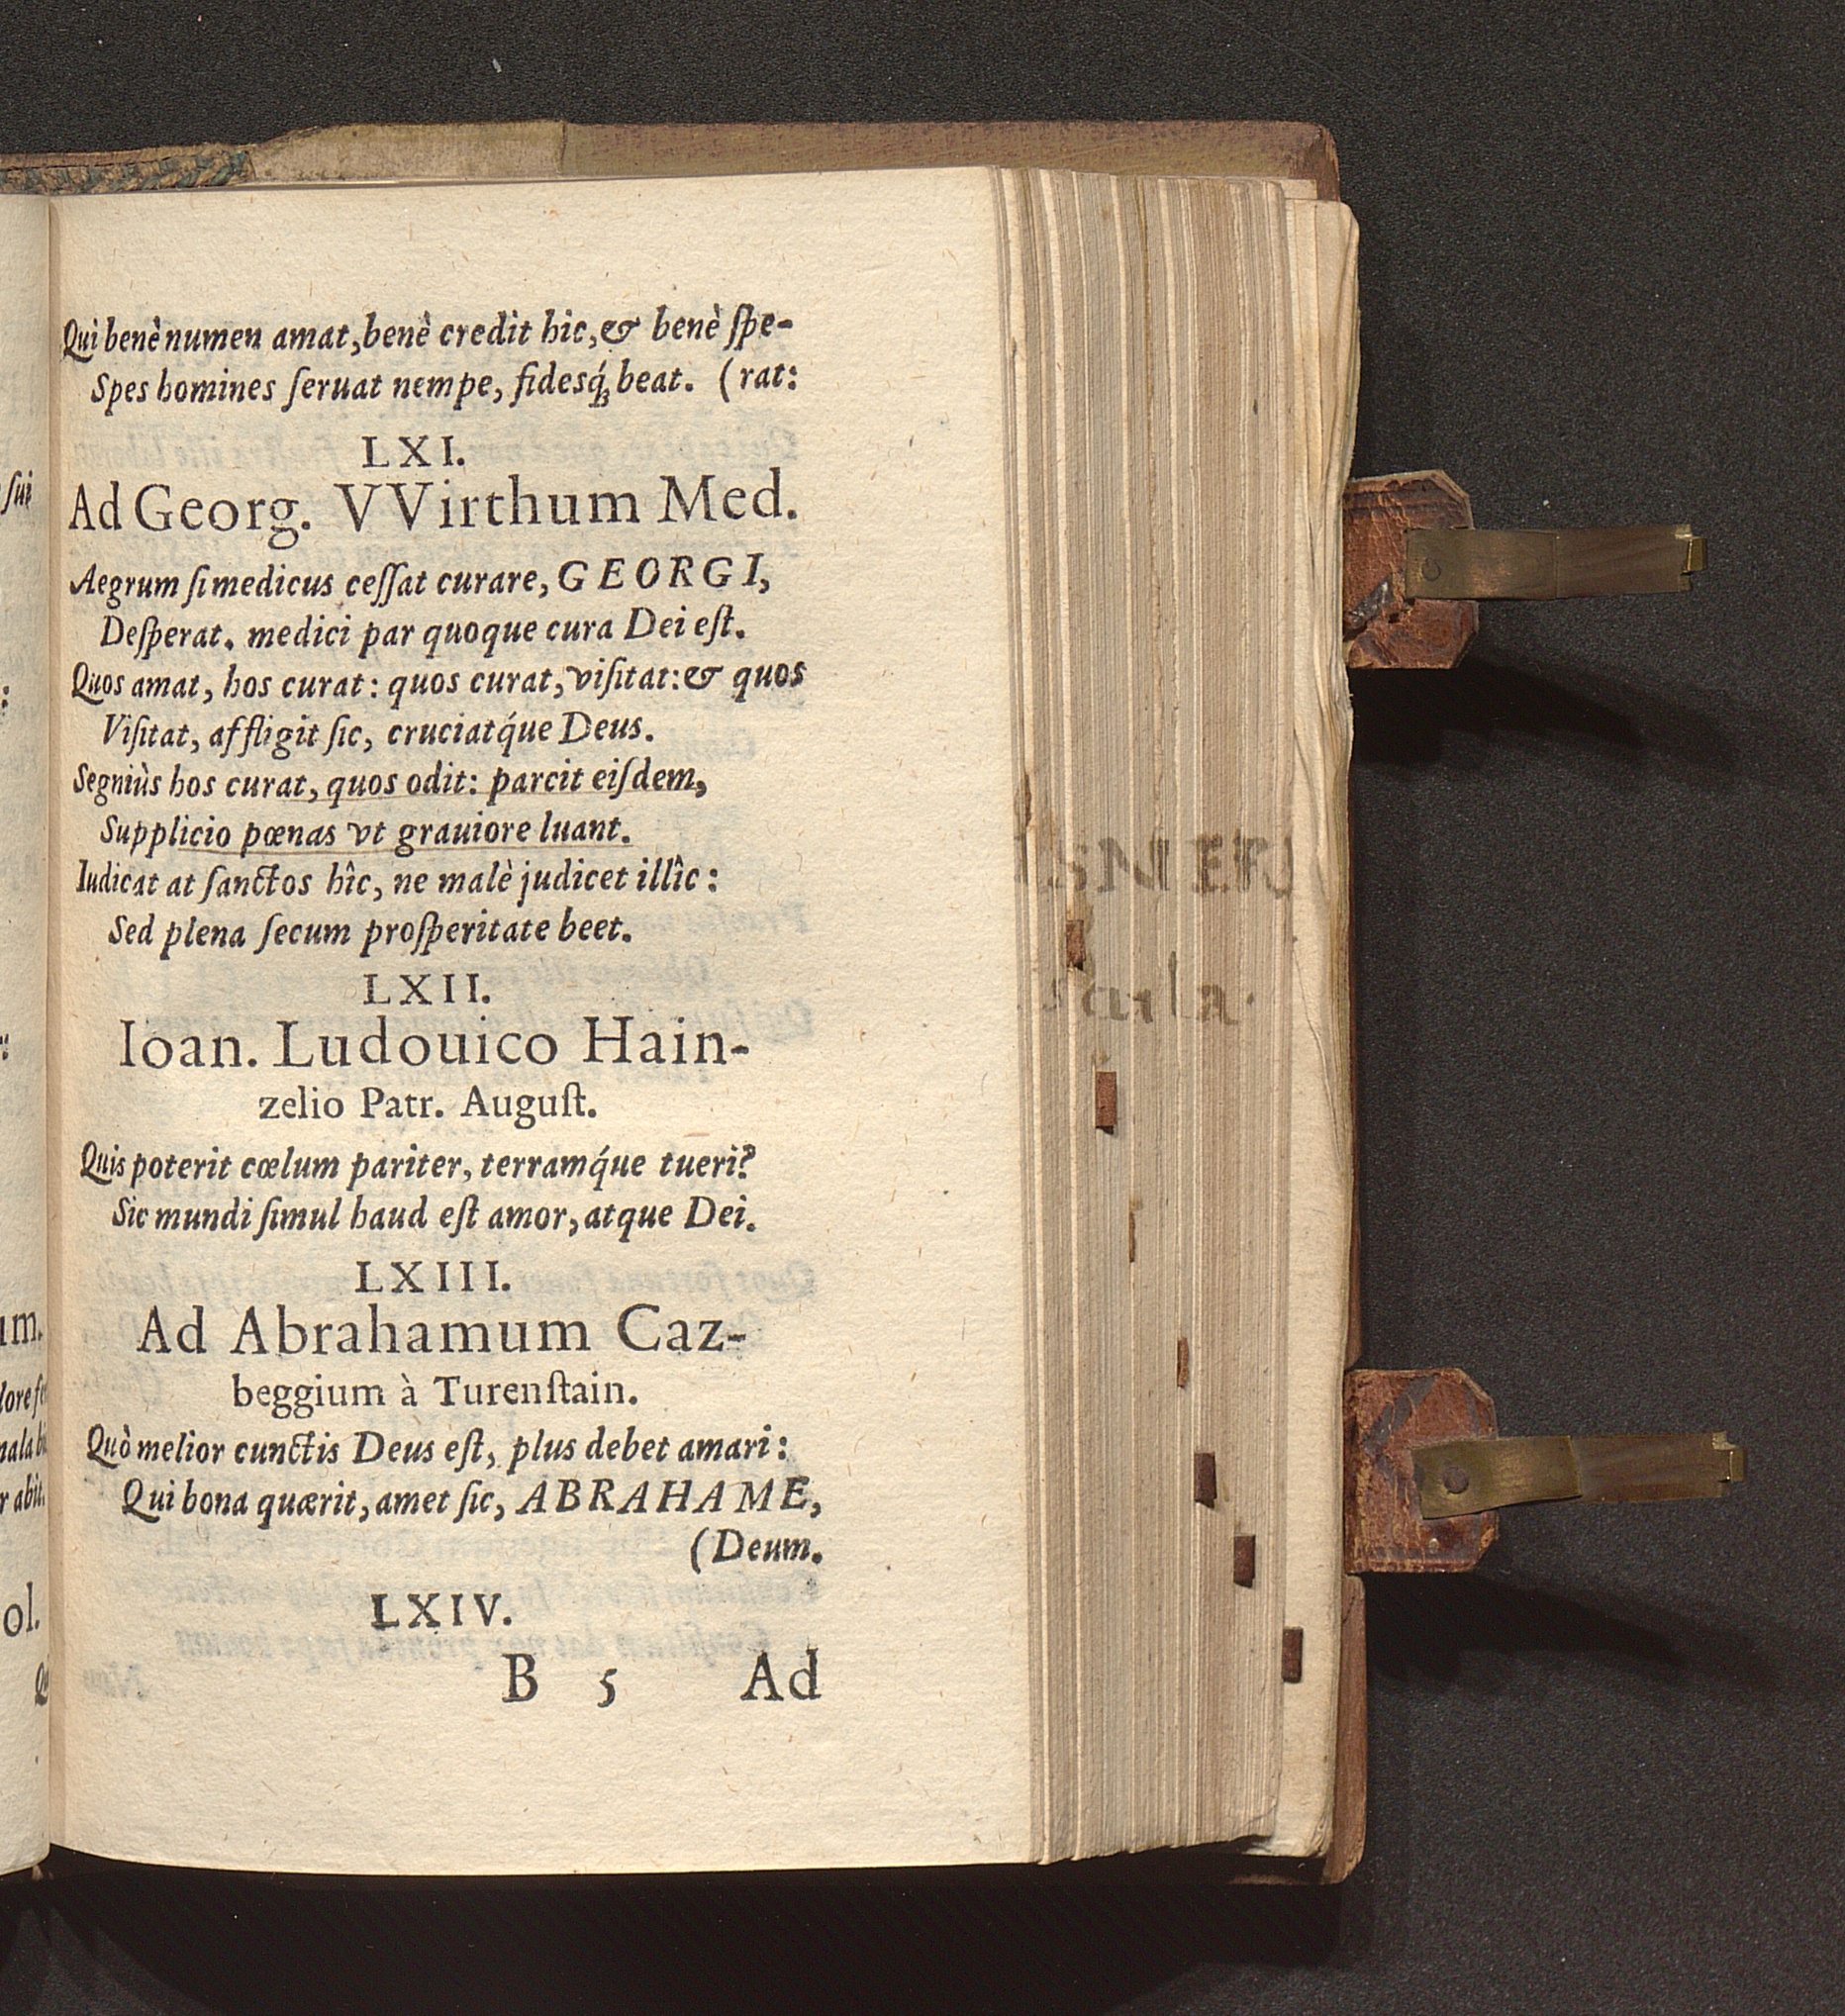 Qui benè numen amat, benè credit hic, & benè ſpe-
Spes homines ſeruat nempe, fidesq́ꝫ beat. (rat:
LXI.
Ad Georg. VVirthum Med.
Aegrum ſi medicus ceſſat curare, GEORGI,
Deſperat. medici par quoque cura Dei eſt.
Quos amat, hos curat: quos curat, viſitat: & quos
Viſitat, affligit ſic, cruciatq́ue Deus.
Segniùs hos curat, quos odit: parcit eiſdem,
Supplicio pœnas vt grauiore luant.
Iudicat at ſanctos hîc, ne malè judicet illîc:
Sed plena ſecum proſperitate beet.
LXII.
Ioan. Ludouico Hain-
zelio Patr. Auguſt.
Quis poterit cœlum pariter, terramq́ue tueri?
Sic mundi ſimul haud eſt amor, atque Dei.
LXIII.
Ad Abrahamum Caz-
beggium à Turenſtain.
Quò melior cunctis Deus eſt, plus debet amari:
Qui bona quærit, amet ſic, ABRAHAME,
(Deum.
LXIV.
B 5 Ad
ſui
:
um.
abit.
ol.
SNER